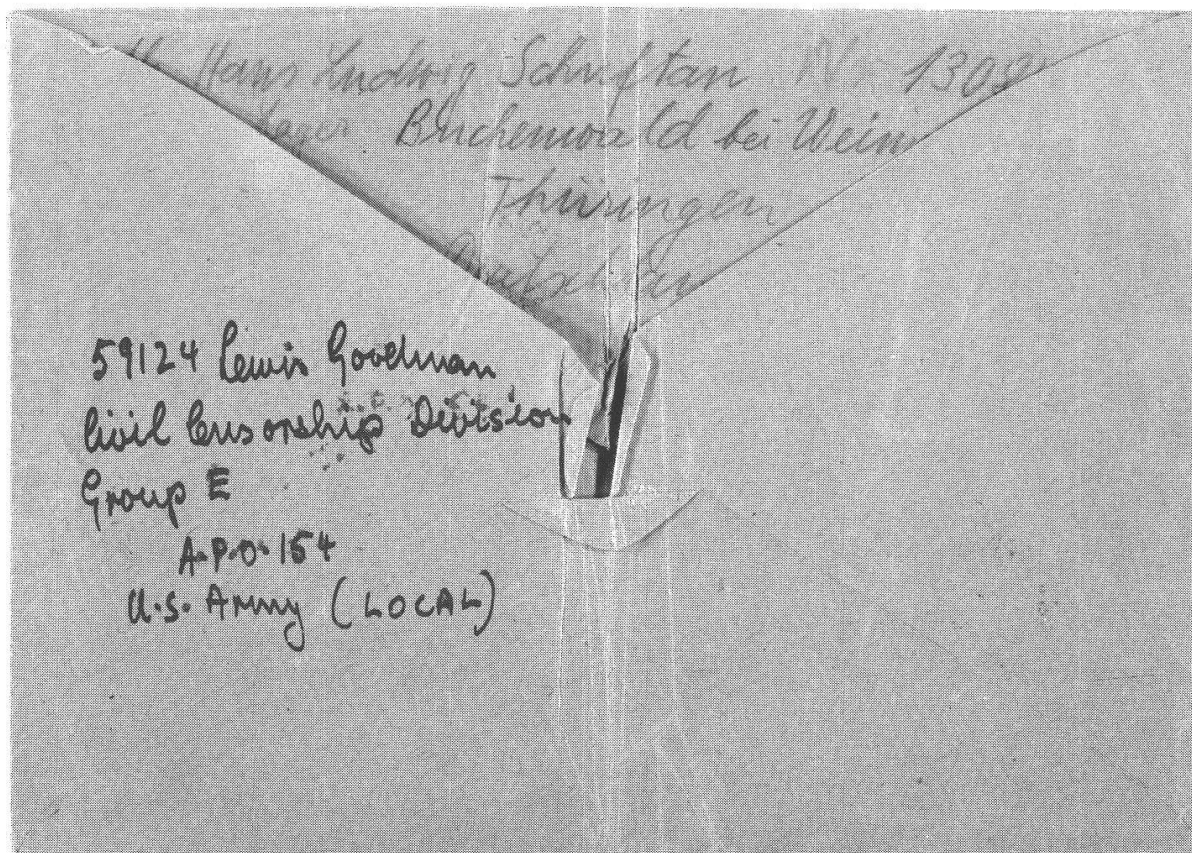 Hans Ludwig Schriftan Nr 1303
Lager Buchenwald bei Weim
Thüringen
59124 Lewis Goodman
Civil Censorship Division
Group E
A.P.O. 154
U.S. Army (LOCAL)